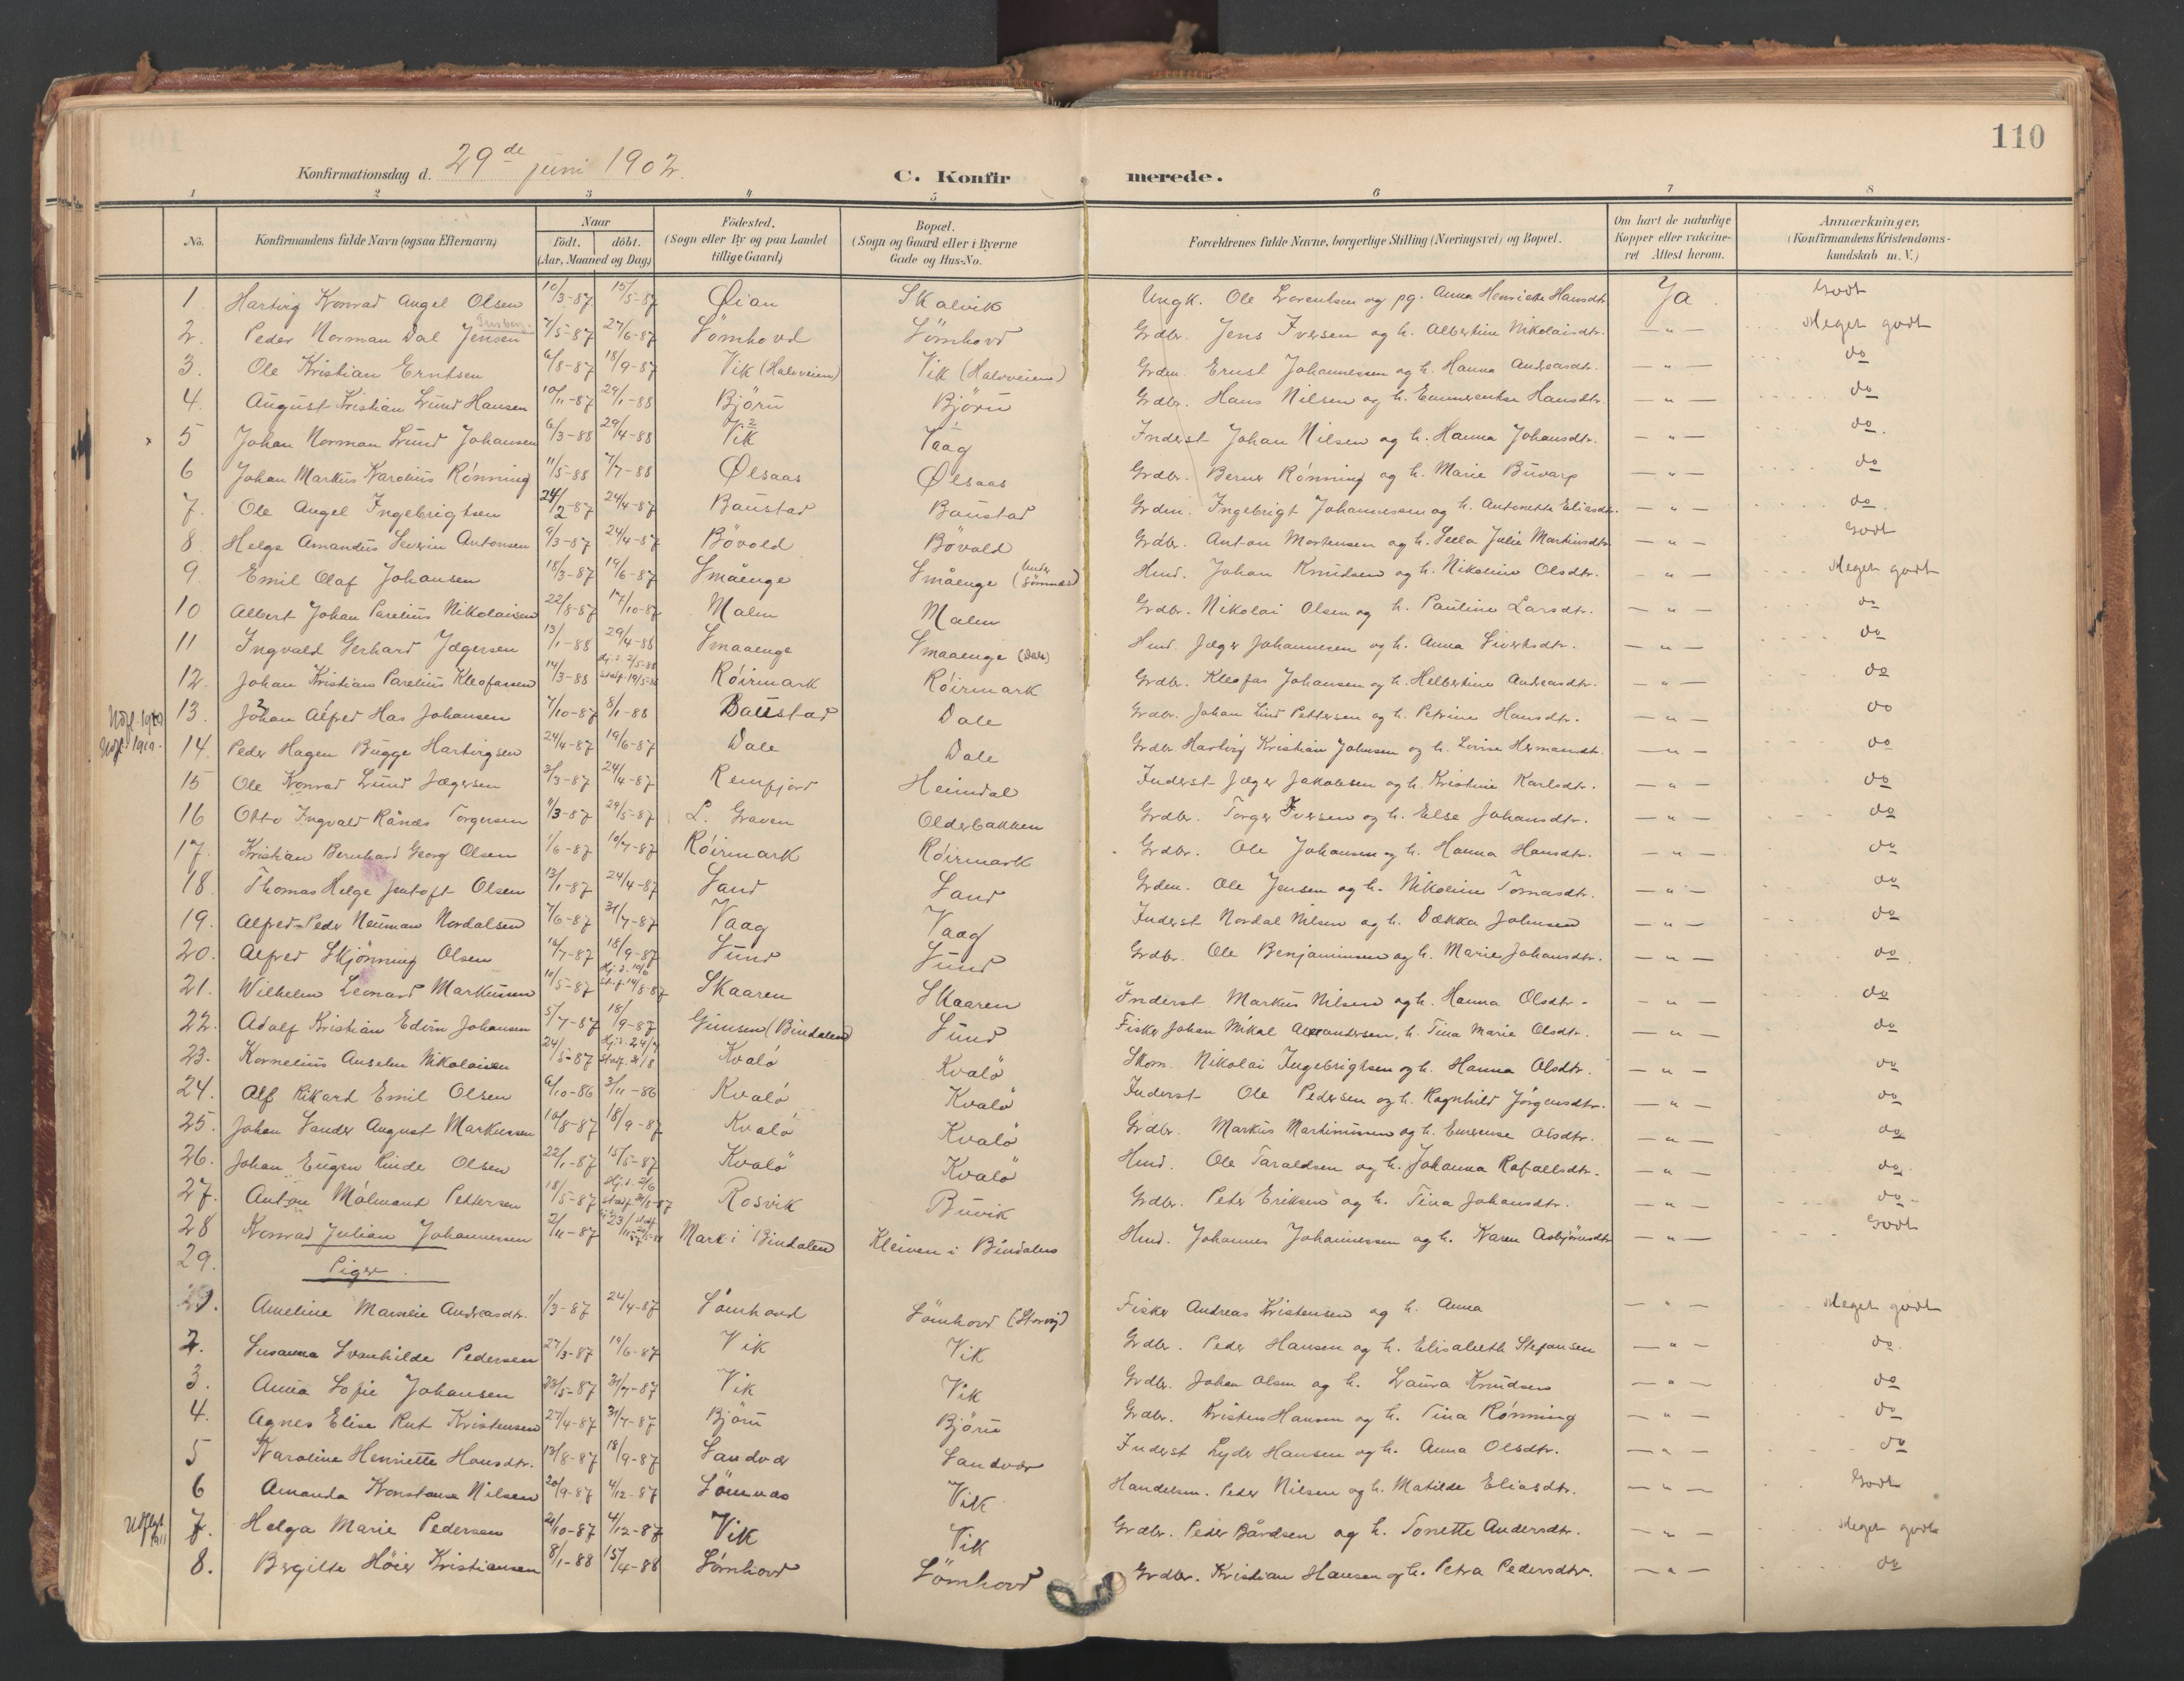 110
Konfirmationsdag d. 29de juni 1902.
C. Konfirmerede.
1 2 3 4 5 6 7 8
No. Konfirmandens fulde Navn (ogsaa Efternavn) Naar født. døbt. (Aar, Maaned og Dag) Fødested. (Sogn eller By og paa Landet tillige Gaard) Bopæl. (Sogn og Gaard eller i Byerne Gade og Hus-No. Forældrenes fulde Navne, borgerlige Stilling (Næringsvei) og Bopæl. Om havt de naturlige Kopper eller vakcineret Attest herom. Anmærkninger, (Konfirmandens Kristendomskundskab m. V.)
1 Hartvig Konrad Angel Olsen 10/3-87 15/5-87 Øian Skalvik Ungk. Ole Lorentsen og pg. Anna Henriette Hansdtr Ja. Godt
2. Peder Norman Dal Jensen 7/5-87 27/6-87 Sömhovd Sömhovd Grdbr. Jens Iversen og h. Albertine Nikolaisdtr. — " — Meget godt
3. Ole Kristian Erntsen 6/8-87 18/9-87 Vik (Halsveien) Vik (Halsveien) Grdm. Ernst Johannessen og h. Hanna Andreasdtr. — " — do
4. August Kristian Lund Hansen 10/11-87 29/1-88 Björn Björn Grdbr. Hans Nilsen og h. Emmerentse Hansdtr. — " — do
5 Johan Norman Lund Johansen 6/3-88 29/4-88 Vik Vaag Inderst Johan Nilsen og h. Hanna Johansdtr. — " — do.
6 Johan Markus Karolius Rönning 11/5-88 7/7-88 Ølsaas Ølsaas Grdbr. Berner Rönning og h. Marie Buvarp — " — do
7. Ole Angel Ingebrigtsen 24/2-87 24/4-87 Baustad Baustad Grdm. Ingebrigt Johannessen og h. Antonette Eliasdtr. — " — do.
8 Helge Amandus Severin Antonsen 9/3-87 24/4-87 Bövold Bövold Grdbr. Anton Mortensen og h. Julie Martinsdtr — " — Godt
9. Emil Olaf Johansen 18/3-87 19/6-87 Småenge Småenge (under Sömnes) Hmd. Johan Knudsen og h. Nikoline Olsdtr. — " — Meget godt
10 Albert Johan Parelius Nikolaisen 22/8-87 17/10-87 Malm Malm Grdbr. Nikolai Olsen og h. Pauline Larsdtr. — " — do
11 Ingvald Gerhard Jægersen 13/1-88 29/4-88 Smaaenge Smaaenge (Dale) Hmd. Jæger Johannesen og h. Anna Sivertsdtr. — " — do
12. Johan Kristian Parelius Kleofassen 14/3-88 Hj.d. 2/5-88 Stadf. 19/5-88 Röirmark Röirmark Grdbr. Kleofas Johansen og h. Helbertine Andreasdtr. — " — do
Udfl. 1910 13. Johan Alfred Has Johansen 7/10-87 8/1-88 Baustad Dale Grdbr. Johan Lind Pettersen og h. Petrine Hansdtr. — " — do
Udfl. 1910. 14. Peder Hagen Bugge Hartvigsen 24/4-87 19/6-87 Dale Dale Grdbr Hartvig Kristian Johnsen og h. Lovise Hermandtr. — " — do
15 Ole Konrad Lund Jægersen 3/3-87 24/4-87 Remfjord Heimdal Inderst Jæger Jakobsen og h. Kristine Karlsdtr. — " — do
16 Otto Ingvald Rånes Torgersen 11/3-87 29/5-87 L. Graven Olderbakken Grdbr. Torger Iversen og h. Else Johansdtr. — " — do
17. Kristian Bernhard Georg Olsen 1/6-87 10/7-87 Röirmark Röirmark Grdbr. Ole Johansen og h. Hanna Hansdtr. — " — do
18. Thomas Helge Jentoft Olsen 13/1-87 24/4-87 Sand Sand Grdm. Ole Jensen og h. Nikoline Tomasdtr. — " — do
19. Alfred-Peder Neuman Nordalsen 7/6-87 31/7-87 Vaag Vaag Inderst Nordal Nilsen og h. Dækka Johnsen — " — do
20. Alfred Skjönning Olsen 16/7-87 18/9-87 Sund Sund Grdbr. Ole Benjaminsen og h. Marie Johansdtr. — " — do.
21. Wilhelm Leonard Markussen 10/5-87 Hj.d. 10/6 St.f. 14/8-87 Skaaren Skaaren Inderst Markus Nilsen og h. Hanna Olsdtr. — " — do
22. Adolf Kristian Edvin Johansen 5/7-87 18/9-87 Gimsen (Bindalen) Sund Fisker Johan Mikal Alexandersen, h. Tina Marie Olsdtr. — " — do
23. Kornelius Anselm Nikolaisen 24/5-87 Hj.d. 24/7 Stadf. 21/8 Kvalö Kvalö Skom. Nikolai Ingebrigtsen og h. Hanna Olsdtr. — " — do
24. Alf Rikard Emil Olsen 6/10-86 3/11-86 Kvalö Kvalö Inderst Ole Pedersen og h. Ragnhild Jörgensdtr. — " — do
25. Johan Sander August Markussen 10/8-87 18/9-87 Kvalö Kvalö Grdbr. Markus Martinussen og h. Emrense Olsdtr. — " — do
26. Johan Eugen Rinde Olsen 22/1-87 15/5-87 Kvalö Kvalö Hmd. Ole Taraldsen og h. Johanna Rafaelsdtr. — " — do
27. Anton Målmand Pettersen 18/5-87 Hj.d. 2/6 Stadf. 21/8-87 Rosvik Buvik Grdbr. Peter Eriksen og h. Tina Johansdtr. — " — do
28 Konrad Julian Johannessen 2/11-87 Mark i Bindalen Kleiven i Bindalen Hmd. Johannes Johannessen og h. Karen Asbjörnsdtr — " — Godt
29. Piger.
1. Ameline Marselie Andreasdtr. 1/3-87 24/4-87 Sömhovd Sömhovd (Storvig) Fisker Andreas Kristensen og h. Anna — " — Meget godt
2. Susanna Svanhilde Pedersen 27/3-87 19/6-87 Vik Vik Grdbr. Peder Hansen og h. Elisabeth Stefansen — " — do.
3. Anna Sofie Johansen 23/5-87 31/7-87 Vik Vik Grdbr. Johan Olsen og h. Laura Knudsen — " — do
4. Agnes Elise Rut Kristensen 27/4-87 31/7-87 Björn Björn Grdbr. Kristen Hansen og h. Tina Rönning — " — do
5 Karoline Henriette Hansdtr. 13/8-87 18/9-87 Sandvær Sandvær Inderst Lyder Hansen og h. Anna Olsdtr. — " — do
6 Amanda Konstanse Nilsen 20/9-87 4/12-87 Sömnæs Vik Handelsm. Peder Nilsen og h. Matilde Eliasdtr. — " — Godt
Udflyt 1911 7. Helga Marie Pedersen 21/10-87 4/12-87 Vik Vik Grdbr. Peder Bårdsen og h. Tonette Andersdtr. — " — Meget godt
8. Bergitte Höier Kristiansen 8/1-88 15/4-88 Sömhovd Sömhovd Grdbr. Kristian Hansen og h. Petra Pedersdtr. — " — do